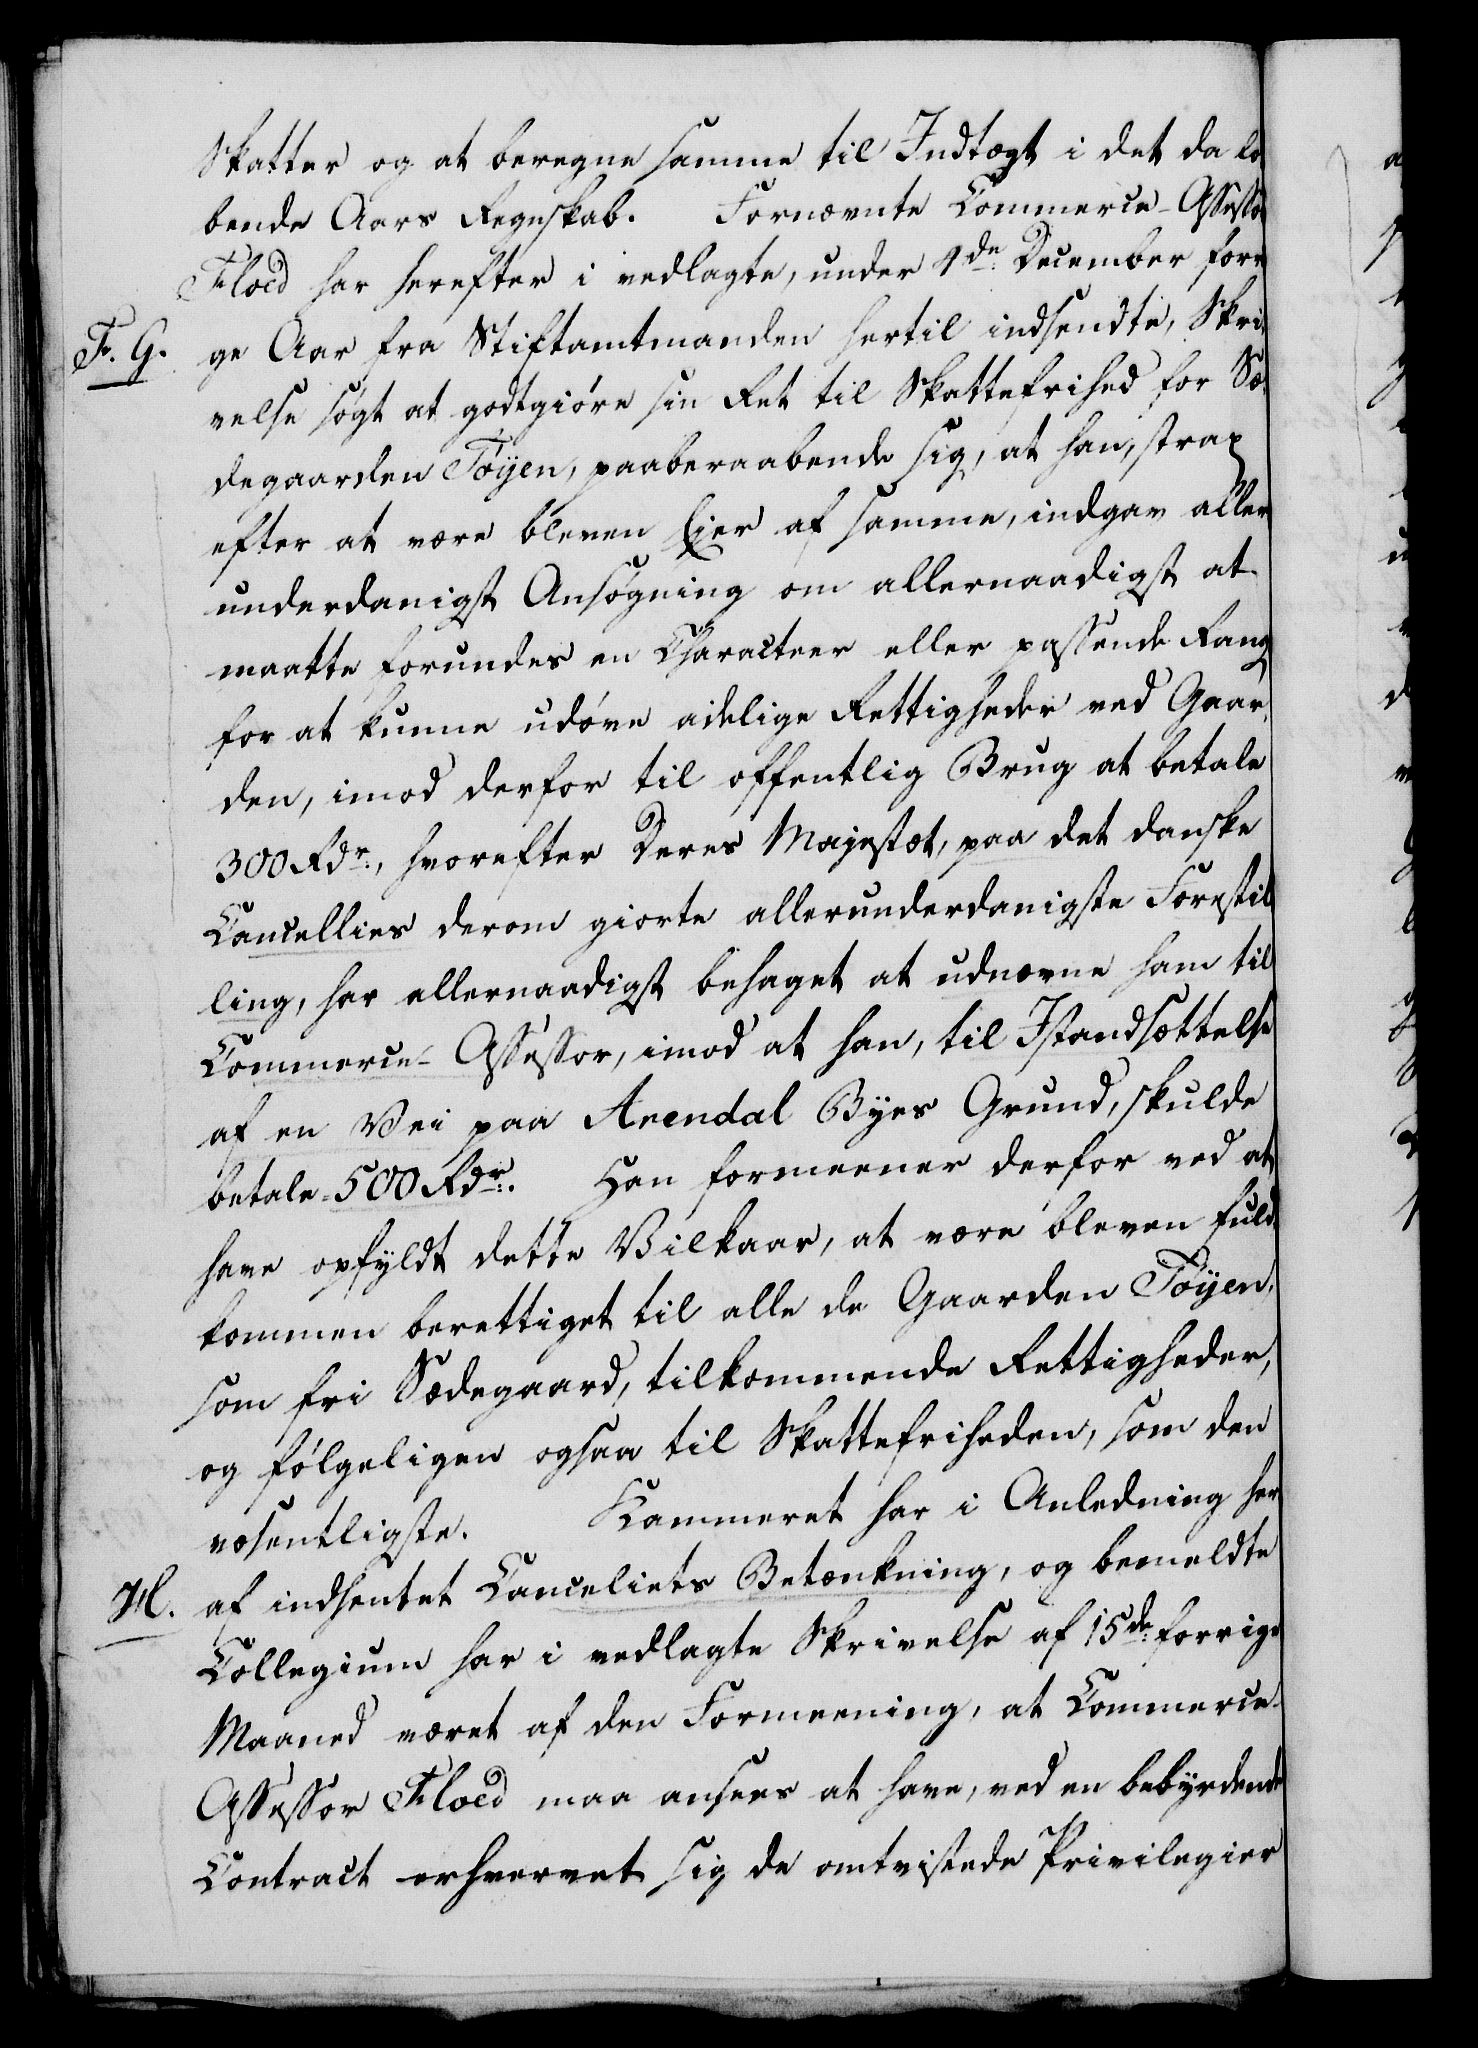 Skatter og at beregne samme til Indtægt i det da lø
bende Aars Regnskab. Fornævnte Commerce-Assessor
Floed har herefter i vedlagte, under 4de December forri
F. G. ge Aar fra Stiftamtmanden hertil indsendte, Skri
velse søgt at godtgiöre sin Ret til Skattefrihed for Sæ
degaarden Töyen, paaberaabende sig, at han, strax
efter at være bleven Ejer af samme, indgav aller
underdanigst Ansøgning om allernaadigst at
maatte forundes en Characteer eller passende Rang
for at kunne udøve adelige Rettigheder ved Gaar,
den, imod derfor til offentlig Brug at betale
300 Rdr., hvorefter Deres Majestæt, paa det danske
Cancellies derom giorte allerunderdanigste Forestil
ling, har allernaadigst behaget at udnævne ham til
Commerce-Assessor, imod at han, til Istandsættelse
af en Vei paa Arendal Byes Grund, skulde
betale 500 Rdr. Han formeener derfor ved at
have opfyldt dette Vilkaar, at være bleven fuld
kommen berettiget til alle de Gaarden Töyen,
som fri Sædegaard, tilkommende Rettigheder,
og følgeligen ogsaa til Skattefriheden, som den
væsentligste. Kammeret har i Anledning her
H. af indhentet Canceliets Betænkning, og bemeldte
Collegium har i vedlagte Skrivelse af 15de forrige
Maaned været af den Formeening, at Commerce-
Assessor Floed maa ansees at have, ved en bebyrdende
Contract erhvervet sig de omtvistede Privilegier